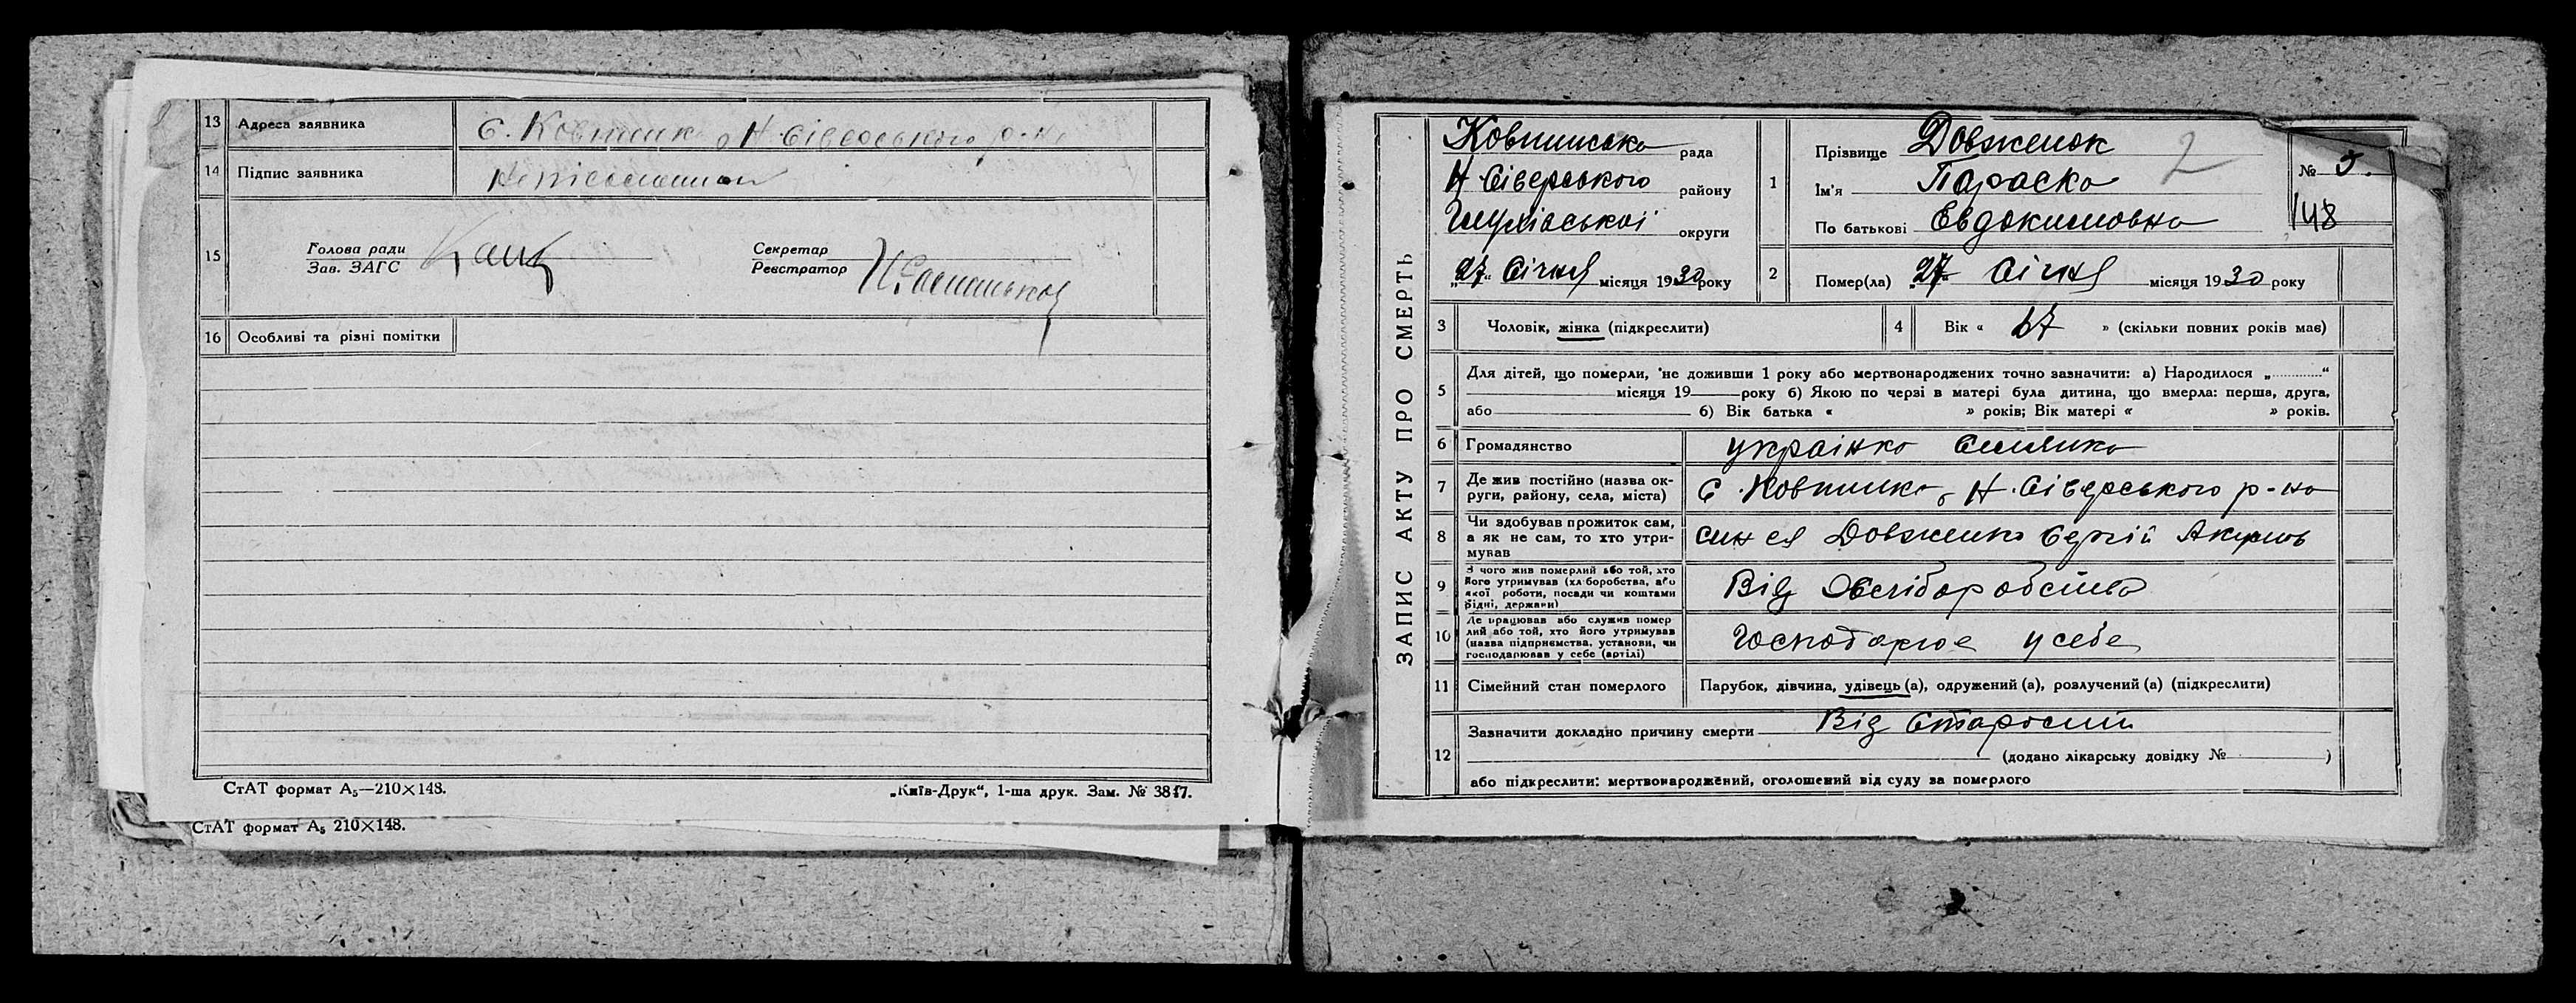 13 Адреса заявника С. Ковпинка, Н-Сіверського р-ну
14 Підпис заявника Неписьменний
15 Голова ради
Зав. ЗАГС
Секретар
Реєстратор
16 Особливі та різні помітки
СтАТ формат А₅—210×148.
„Київ-Друк“, 1-ша друк. Зам. № 3817.
СтАТ формат А₅ 210×148.
ЗАПИС АКТУ ПРО СМЕРТЬ
Ковпинська рада
Н-Сіверського району
Глухівської округи
„27“ Січня місяця 1930 року
1 Прізвище Довженок
Ім'я Параска
По батькові Евдокимовна
2
№ 5.
148
2 Помер(ла) „27“ Січня місяця 1930 року
3 Чоловік, жінка (підкреслити)
4 Вік « 67 » (скільки повних років має)
5 Для дітей, що померли, не доживши 1 року або мертвонароджених точно зазначити: а) Народилося „ “
місяця 19 року б) Якою по черзі в матері була дитина, що вмерла: перша, друга,
або б) Вік батька « » років; Вік матері « » років.
6 Громадянство українка Селянка
7 Де жив постійно (назва ок-
руги, району, села, міста) С. Ковпинка, Н-Сіверського р-на
8 Чи здобував прожиток сам,
а як не сам, то хто утри-
мував син ея Довженко Сергій
9 З чого жив померлий або той, хто
його утримував (хліборобства, або
якої роботи, посади чи коштами
рідні, держави) Від Хліборобства
10 Де працював або служив помер
лий або той, хто його утримував
(назва підприємства, установи, чи
господарював у себе (артілі) Господарює у себе
11 Сімейний стан померлого Парубок, дівчина, удівець (а), одружений (а), розлучений (а) (підкреслити)
12 Зазначити докладно причину смерти Від Старости
(додано лікарську довідку № )
або підкреслити: мертвонароджений, оголошений від суду за померлого